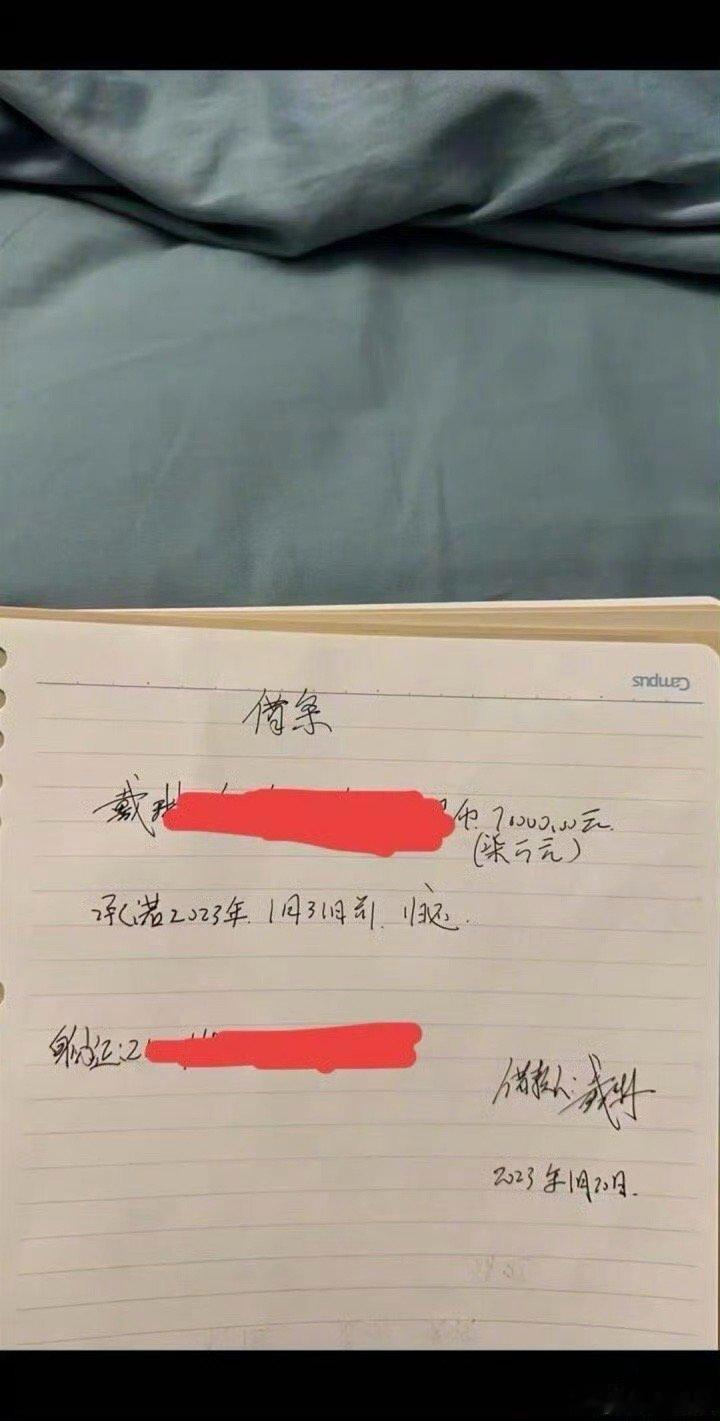 Campus
借条
戴琳 币 70000.00元.
(柒万元)
承诺2023年.1月31日前.归还.
身份证:2
借款人:戴琳
2023年1月20日.